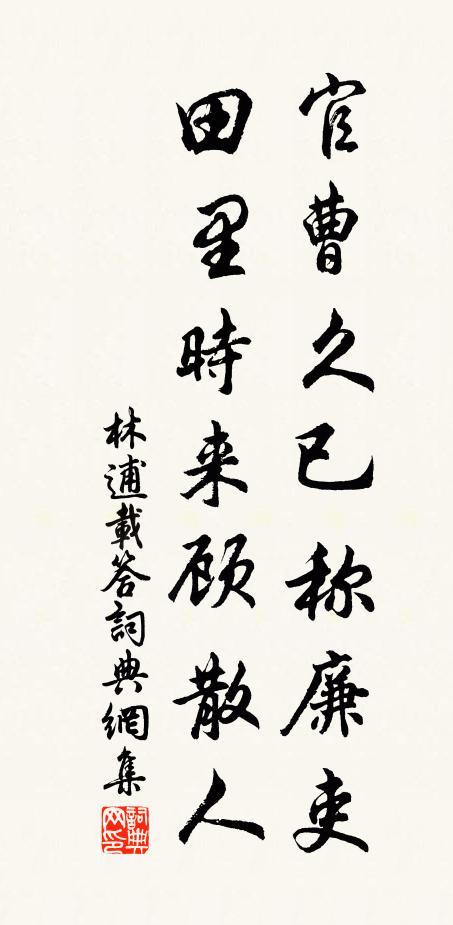 官曹久已称廉吏
田里時来顾散人
林逋載答詞典網集
詞典网印